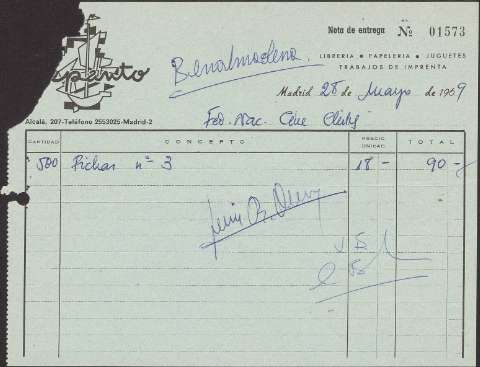 Nota de entrega Nº 01573
Benalmadena
LIBRERIA • PAPELERIA • JUGUETES
TRABAJOS DE IMPRENTA
Madrid 28 de Mayo de 1969
Alcalá, 207-Teléfono 2553025-Madrid-2
Fed. Nac. Cine Clubs
CANTIDAD CONCEPTO PRECIO UNIDAD TOTAL
500 Fichas nº 3 18 - 90 -